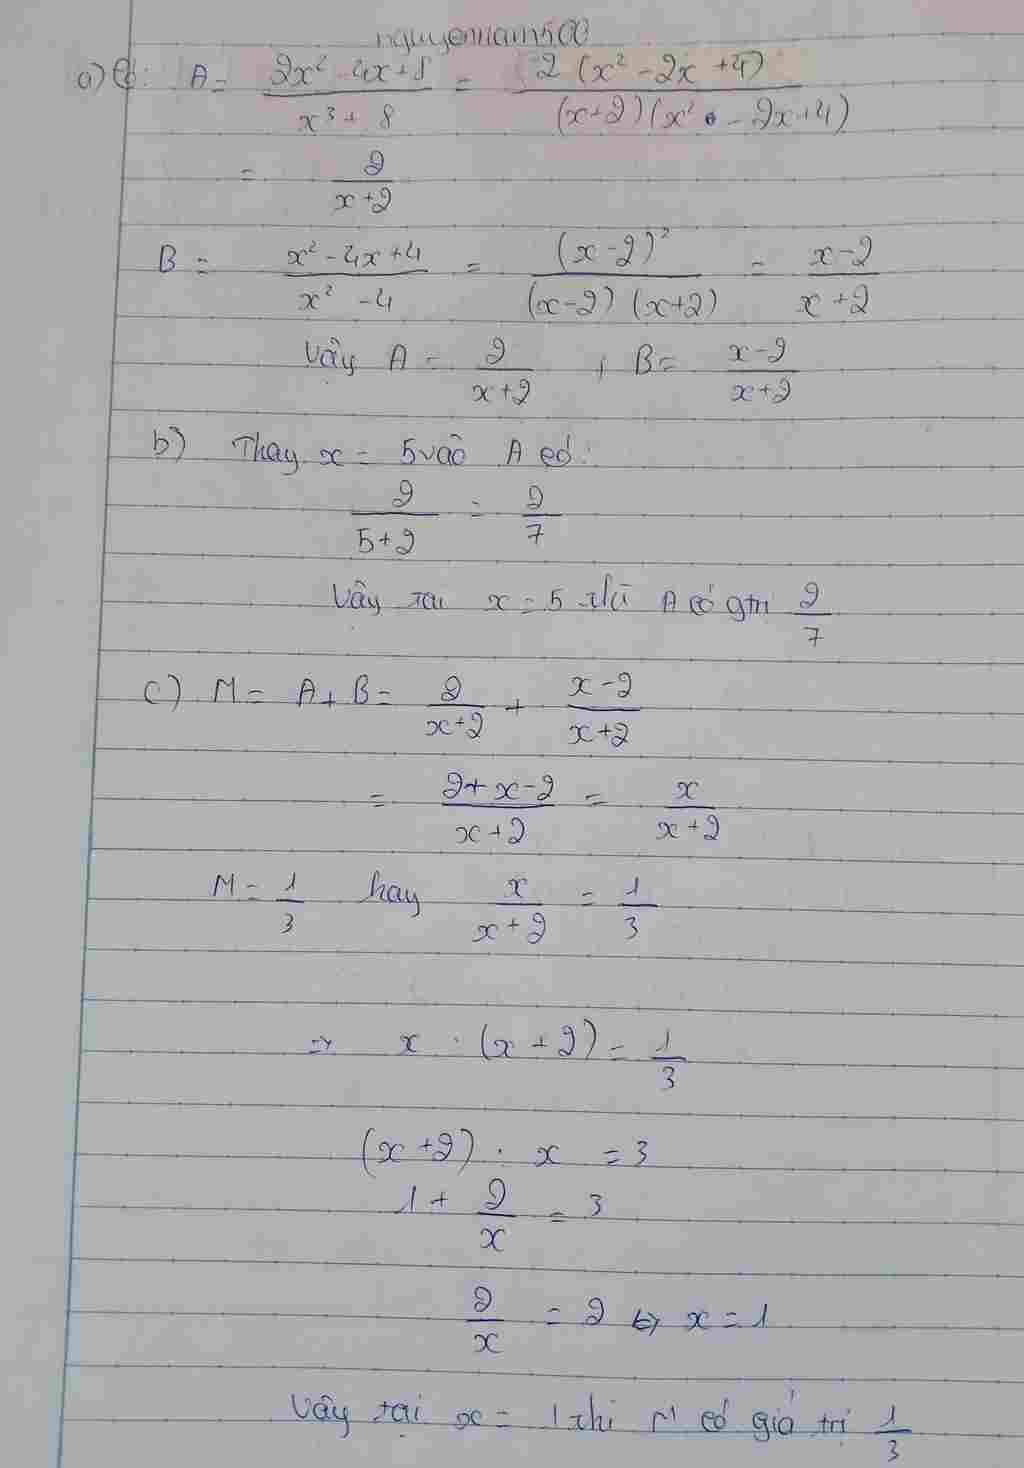 nguyennam500
a) Có: A = (2x² - 4x + 8)/(x³ + 8) = 2(x² - 2x + 4)/((x+2)(x² - 2x+4))
= 2/(x+2)
B = (x² - 4x + 4)/(x² - 4) = (x-2)²/((x-2)(x+2)) = (x-2)/(x+2)
Vậy A = 2/(x+2) , B = (x-2)/(x+2)
b) Thay x = 5 vào A có:
2/(5+2) = 2/7
Vậy tại x = 5 thì A có gtrị 2/7
c) M = A + B = 2/(x+2) + (x-2)/(x+2)
= (2+x-2)/(x+2) = x/(x+2)
M = 1/3 hay x/(x+2) = 1/3
⇒ x : (x+2) = 1/3
(x+2) : x = 3
1 + 2/x = 3
2/x = 2 ⇔ x = 1
Vậy tại x = 1 thì M có giá trị 1/3